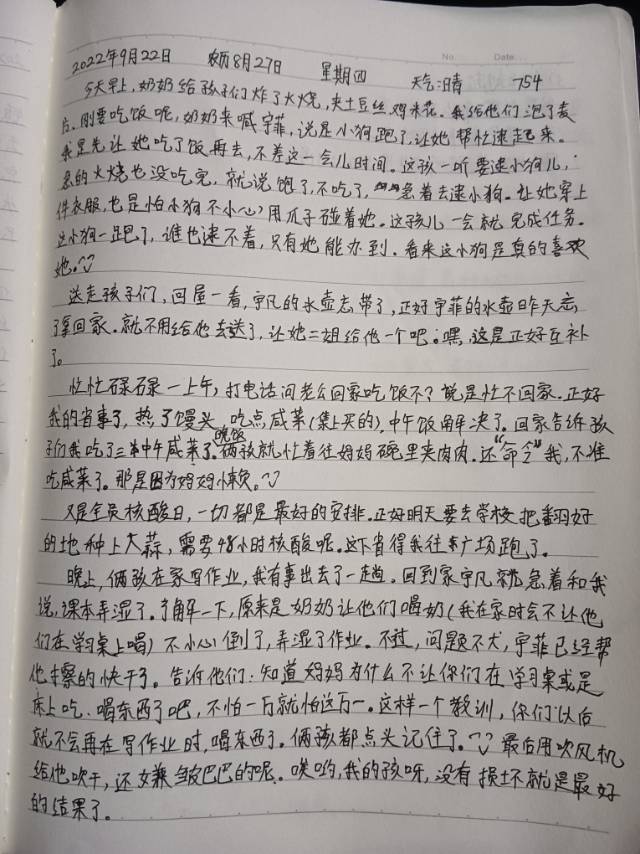 No. Date.
2022年9月22日 农历8月27日 星期四 天气:晴 754
今天早上,奶奶给孩子们炸了火烧,夹土豆丝,鸡米花。我给他们泡了麦
片。刚要吃饭呢,奶奶来喊宇菲,说是小狗跑了,让她帮忙逮起来。
我是先让她吃了饭再去,不差这一会儿时间。这孩一听要逮小狗儿,
急的火烧也没吃完,就说饱了,不吃了,急着去逮小狗。让她穿上
件衣服,也是怕小狗不小心用爪子碰着她。这孩儿一会就完成任务。
这小狗一跑了,谁也逮不着,只有她能办到。看来这小狗是真的喜欢
她。
送走孩子们,回屋一看,宇凡的水壶忘带了,正好宇菲的水壶昨天忘
了拿回家。就不用给他去送了,让她二姐给他一个吧。嘿,这是正好互补
了。
忙忙碌碌一上午,打电话问老公回家吃饭不?说是忙不回家。正好
我的省事了,热了馒头,吃点咸菜(集上买的),中午饭解决了。回家告诉孩
子们我吃了中午咸菜了。晚饭俩孩就忙着往妈妈碗里夹肉肉。还“命令”我,不准
吃咸菜了。那是因为妈妈懒。
又是全员核酸日,一切都是最好的安排。正好明天要去学校把翻好
的地种上大蒜,需要48小时核酸呢。这下省得我往广场跑了。
晚上,俩孩在家写作业,我有事出去了一趟。回到家宇凡就急着和我
说,课本弄湿了。了解一下,原来是奶奶让他们喝奶(我在家时会不让他
们在学习桌上喝)不小心倒了,弄湿了作业。不过,问题不大,宇菲已经帮
他擦的快干了。告诉他们:知道妈妈为什么不让你们在学习桌或是
床上吃、喝东西了吧,不怕一万就怕这万一。这样一个教训,你们以后
就不会再在写作业时,喝东西了。俩孩都点头记住了。最后用吹风机
给他吹干,还嫌皱巴巴的呢。哎哟,我的孩呀,没有损坏就是最好
的结果了。